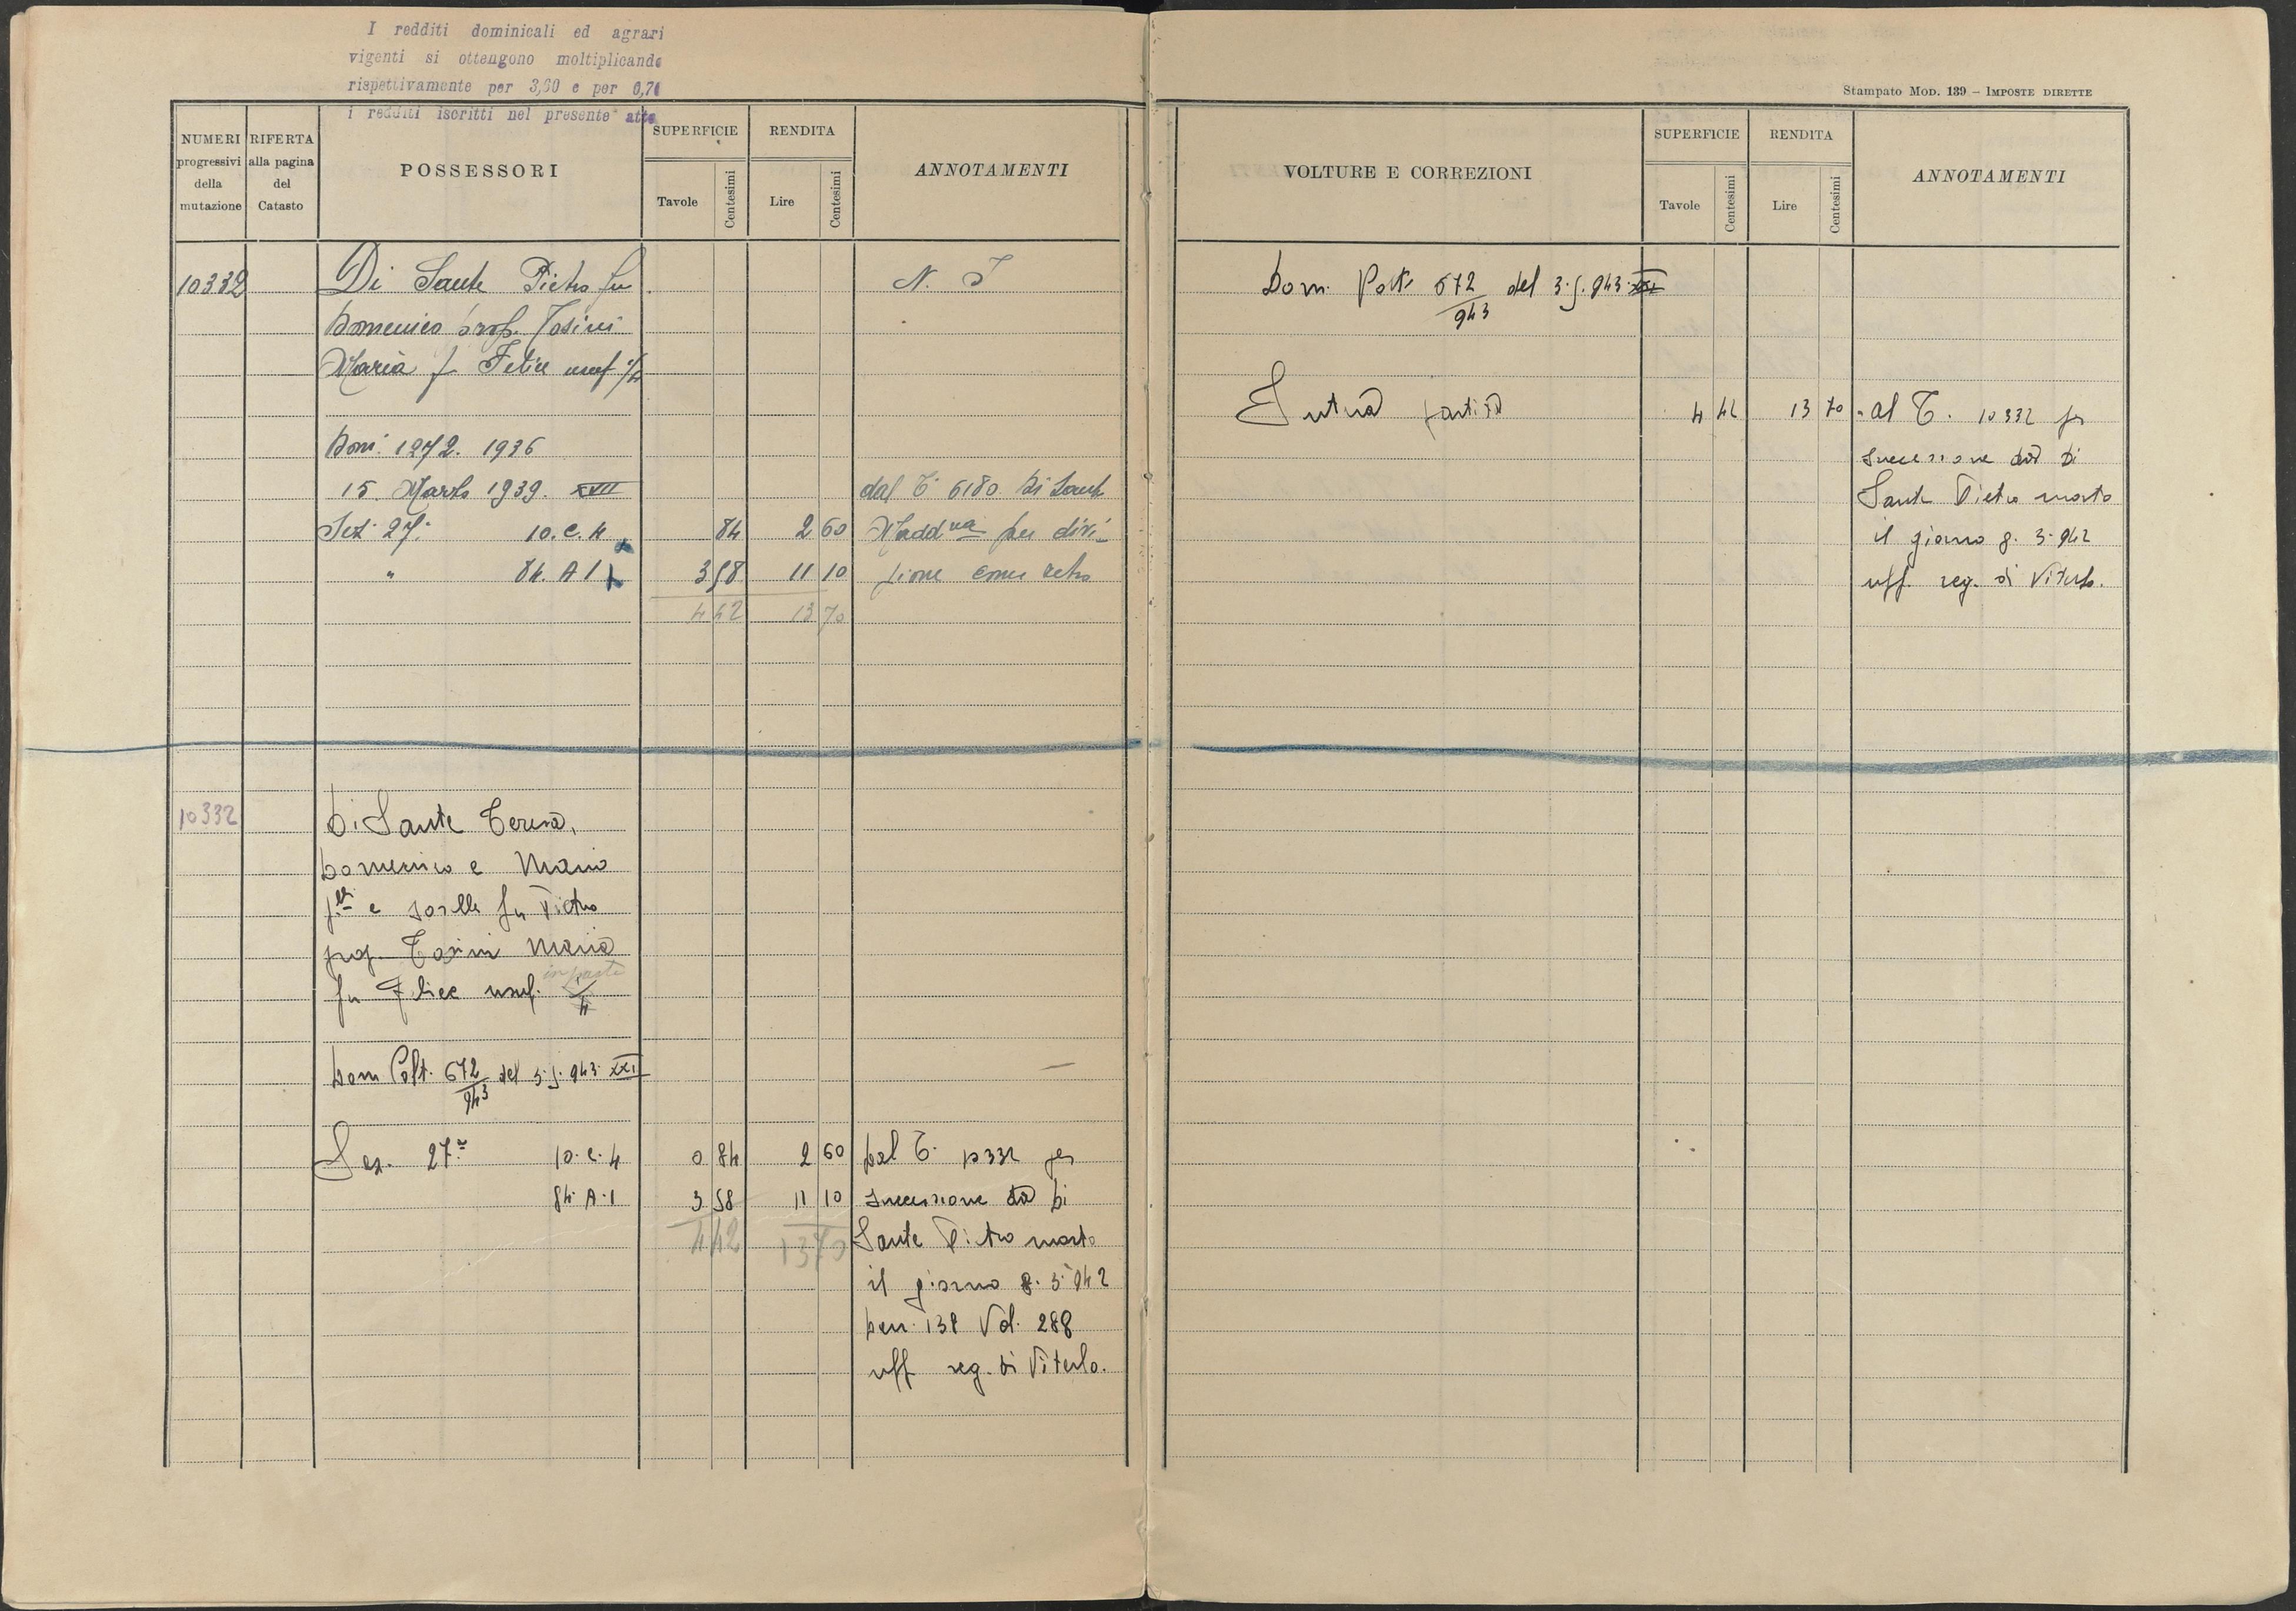 I redditi dominicali ed agrari
vigenti si ottengono moltiplicando
rispettivamente per 3,60 e per 0,70
i redditi iscritti nel presente atto
NUMERI progressivi della mutazione
RIFERTA alla pagina del Catasto
POSSESSORI
SUPERFICIE
Tavole Centesimi
RENDITA
Lire Centesimi
ANNOTAMENTI
10332 Di Sante Pietro fu N. I
Domenico prop. Tosini
Maria f Felice usuf 1/4
Dom. 1272. 1936
15 Marzo 1939. XVII dal T. 6180 Di Sante
Sez 27. 10.C.4 84 2 60 Madd.na per divi-
" 84. A 1 3 58 11 10 sione come retro
4 42 13 70
10332 Di Sante Teresa,
Domenico e Maria
f.lli e sorelle fu Pietro
prop. Tosini Maria
in parte
fu Felice usuf. 1/4
Dom Volt. 672/943 del 3.5.943 XXI
Sez. 27.a 10.C.4 0 84 2 60 Dal T. 10332 per
84.A.1 3 58 11 10 successione da Di
4 42 13 70 Sante Pietro morto
il giorno 8.3.942
den. 138 Vol. 288
uff reg. di Viterbo.
Stampato Mod. 139 – IMPOSTE DIRETTE
VOLTURE E CORREZIONI
SUPERFICIE
Tavole Centesimi
RENDITA
Lire Centesimi
ANNOTAMENTI
Dom. Volt. 672/943 del 3.5.943 XXI
Intera partita 4 42 13 70 al T. 10332 per
successione da Di
Sante Pietro morto
il giorno 8.3.942
uff. reg. di Viterbo.